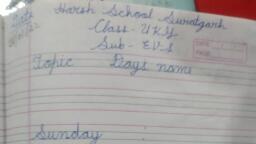 Harsh School Suratgarh
Class - UKG
Sub - EVS
DATE
PAGE
Topic Days name
Sunday :